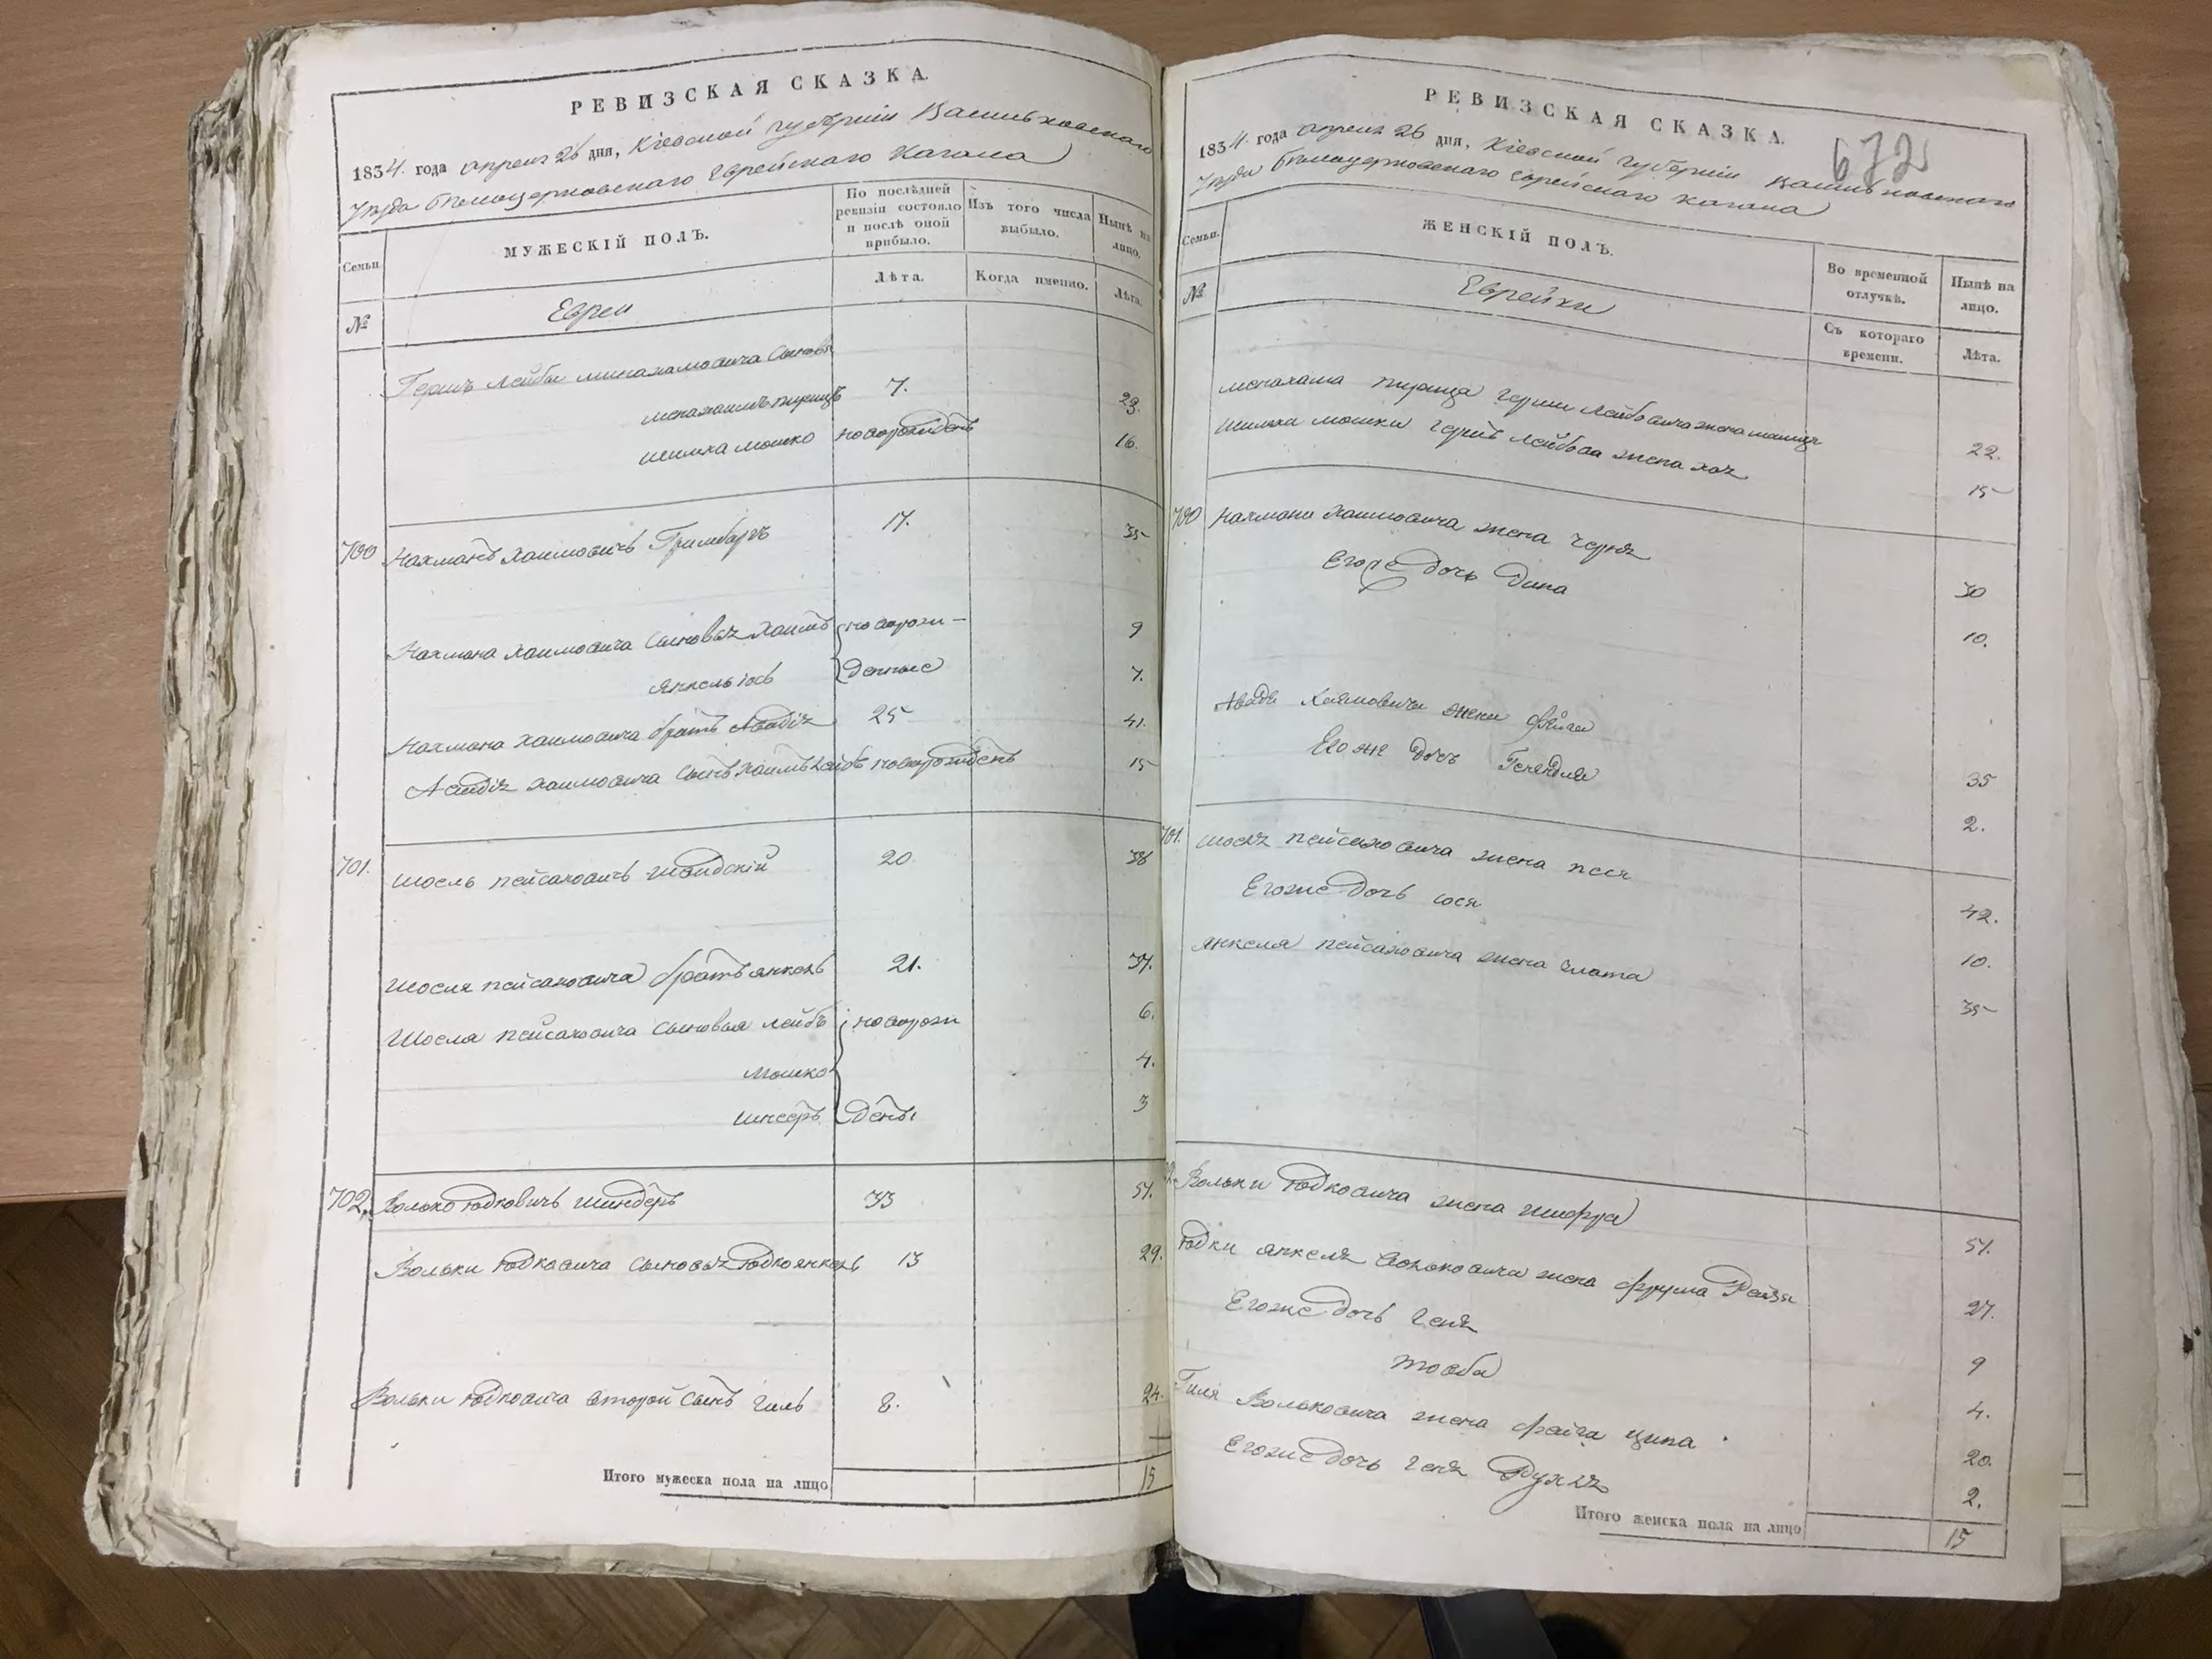 РЕВИЗСКАЯ СКАЗКА.
1834. года апреля 26 дня, Кіевской губерніи Васильковскаго
Уезда белоцерковскаго Еврейскаго Кагала
Семьи.
МУЖЕСКІЙ ПОЛЪ.
По послѣдней ревизіи состояло и послѣ оной прибыло.
Изъ того числа выбыло.
Нынѣ на лицо.
Лѣта.
Когда именно.
Лѣта.
№
Евреи
Гершъ Лейбы минахамовича Сыновья
менахаимъ пириць 7. 23.
шимха мошко новорожденъ 16.
700 Нахманъ Хаимовичъ Гримбергъ 17. 35
Нахмана Хаимовича Сыновья Хаимъ новорож- 9
янкель іось денные 7.
Нахмана Хаимовича братъ Авадія 25 41.
Авадія Хаимовича Сынъ Хаимъ Лейбъ новорожденъ 15
701. Шосель пейсаховичъ 20 38
Шосля пейсаховича братъ янкель 21. 37.
Шосля пейсаховича Сыновья лейбъ новорож 6.
мошко 4.
денъ 3
702. Волько Юдковичъ шиндеръ 33 51.
Вольки Юдковича Сыновья Юдко янкель 13 29.
Вольки Юдковича второй Сынъ Гиль 8. 24.
Итого мужеска пола на лицо 15
РЕВИЗСКАЯ СКАЗКА.
672
1834 года апреля 26 дня, Кіевской губерніи Васильковскаго
Уезда белоцерковскаго Еврейскаго Кагала
Семьи.
ЖЕНСКІЙ ПОЛЪ.
Во временной отлучкѣ.
Нынѣ на лицо.
№
Еврейки
Съ котораго времени.
Лѣта.
менахаима пирица Герш Лейбовича жена 22.
шимхи мошки Герш Лейбова жена хая 15
700 Нахмана Хаимовича жена черня 30
Его же дочь Дина 10.
Авадія Хаимовича жена фейга 35
Его же дочь Генендля 2.
701. Шосля пейсаховича жена песя 42.
Его же дочь сося 10.
янкеля пейсаховича жена злата 35
Вольки Юдковича жена шифра 51.
Юдки янкеля Вольковича жена фрума Рейзя 27.
Его же дочь Геня 9
товба 4.
Гиля Вольковича жена фейга ципа 20.
Его же дочь Геня 2.
Итого женска пола на лицо 15